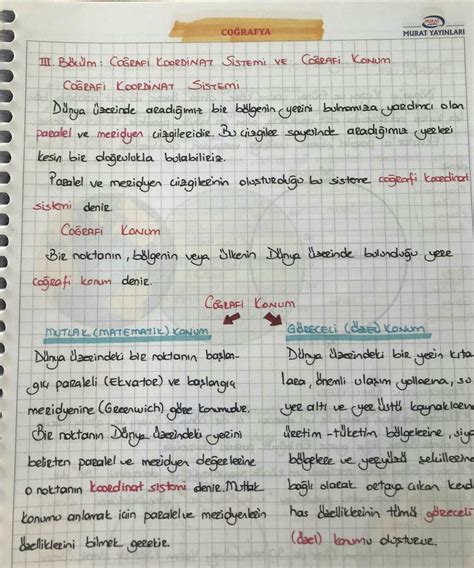 COĞRAFYA
MURAT
MURAT YAYINLARI
III. BÖLÜM: COĞRAFİ KOORDİNAT SİSTEMİ VE COĞRAFİ KONUM
COĞRAFİ KOORDİNAT SİSTEMİ
Dünya üzerinde aradığımız bir bölgenin yerini bulmamıza yardımcı olan
paralel ve meridyen çizgileridir. Bu çizgiler sayesinde aradığımız yerleri
kesin bir doğrulukla bulabiliriz.
Paralel ve meridyen çizgilerinin oluşturduğu bu sisteme coğrafi koordinat
sistemi denir.
COĞRAFİ KONUM
Bir noktanın, bölgenin veya ülkenin Dünya üzerinde bulunduğu yere
coğrafi konum denir.
COĞRAFİ KONUM
MUTLAK (MATEMATİK) KONUM
Dünya üzerindeki bir noktanın başlan-
gıç paraleli (Ekvator) ve başlangıç
meridyenine (Greenwich) göre konumudur.
Bir noktanın Dünya üzerindeki yerini
belirten paralel ve meridyen değerlerine
o noktanın koordinat sistemi denir. Mutlak
konumu anlamak için paralel ve meridyenlerin
özelliklerini bilmek gerekir.
GÖRECELİ (ÖZEL) KONUM
Dünya üzerindeki bir yerin kıta
lara, önemli ulaşım yollarına, su
yer altı ve yer üstü kaynaklarına
üretim-tüketim bölgelerine, siya
bölgelere ve yeryüzü şekillerine
bağlı olarak ortaya çıkan kend
has özelliklerinin tümü göreceli
(özel) konumu oluşturur.